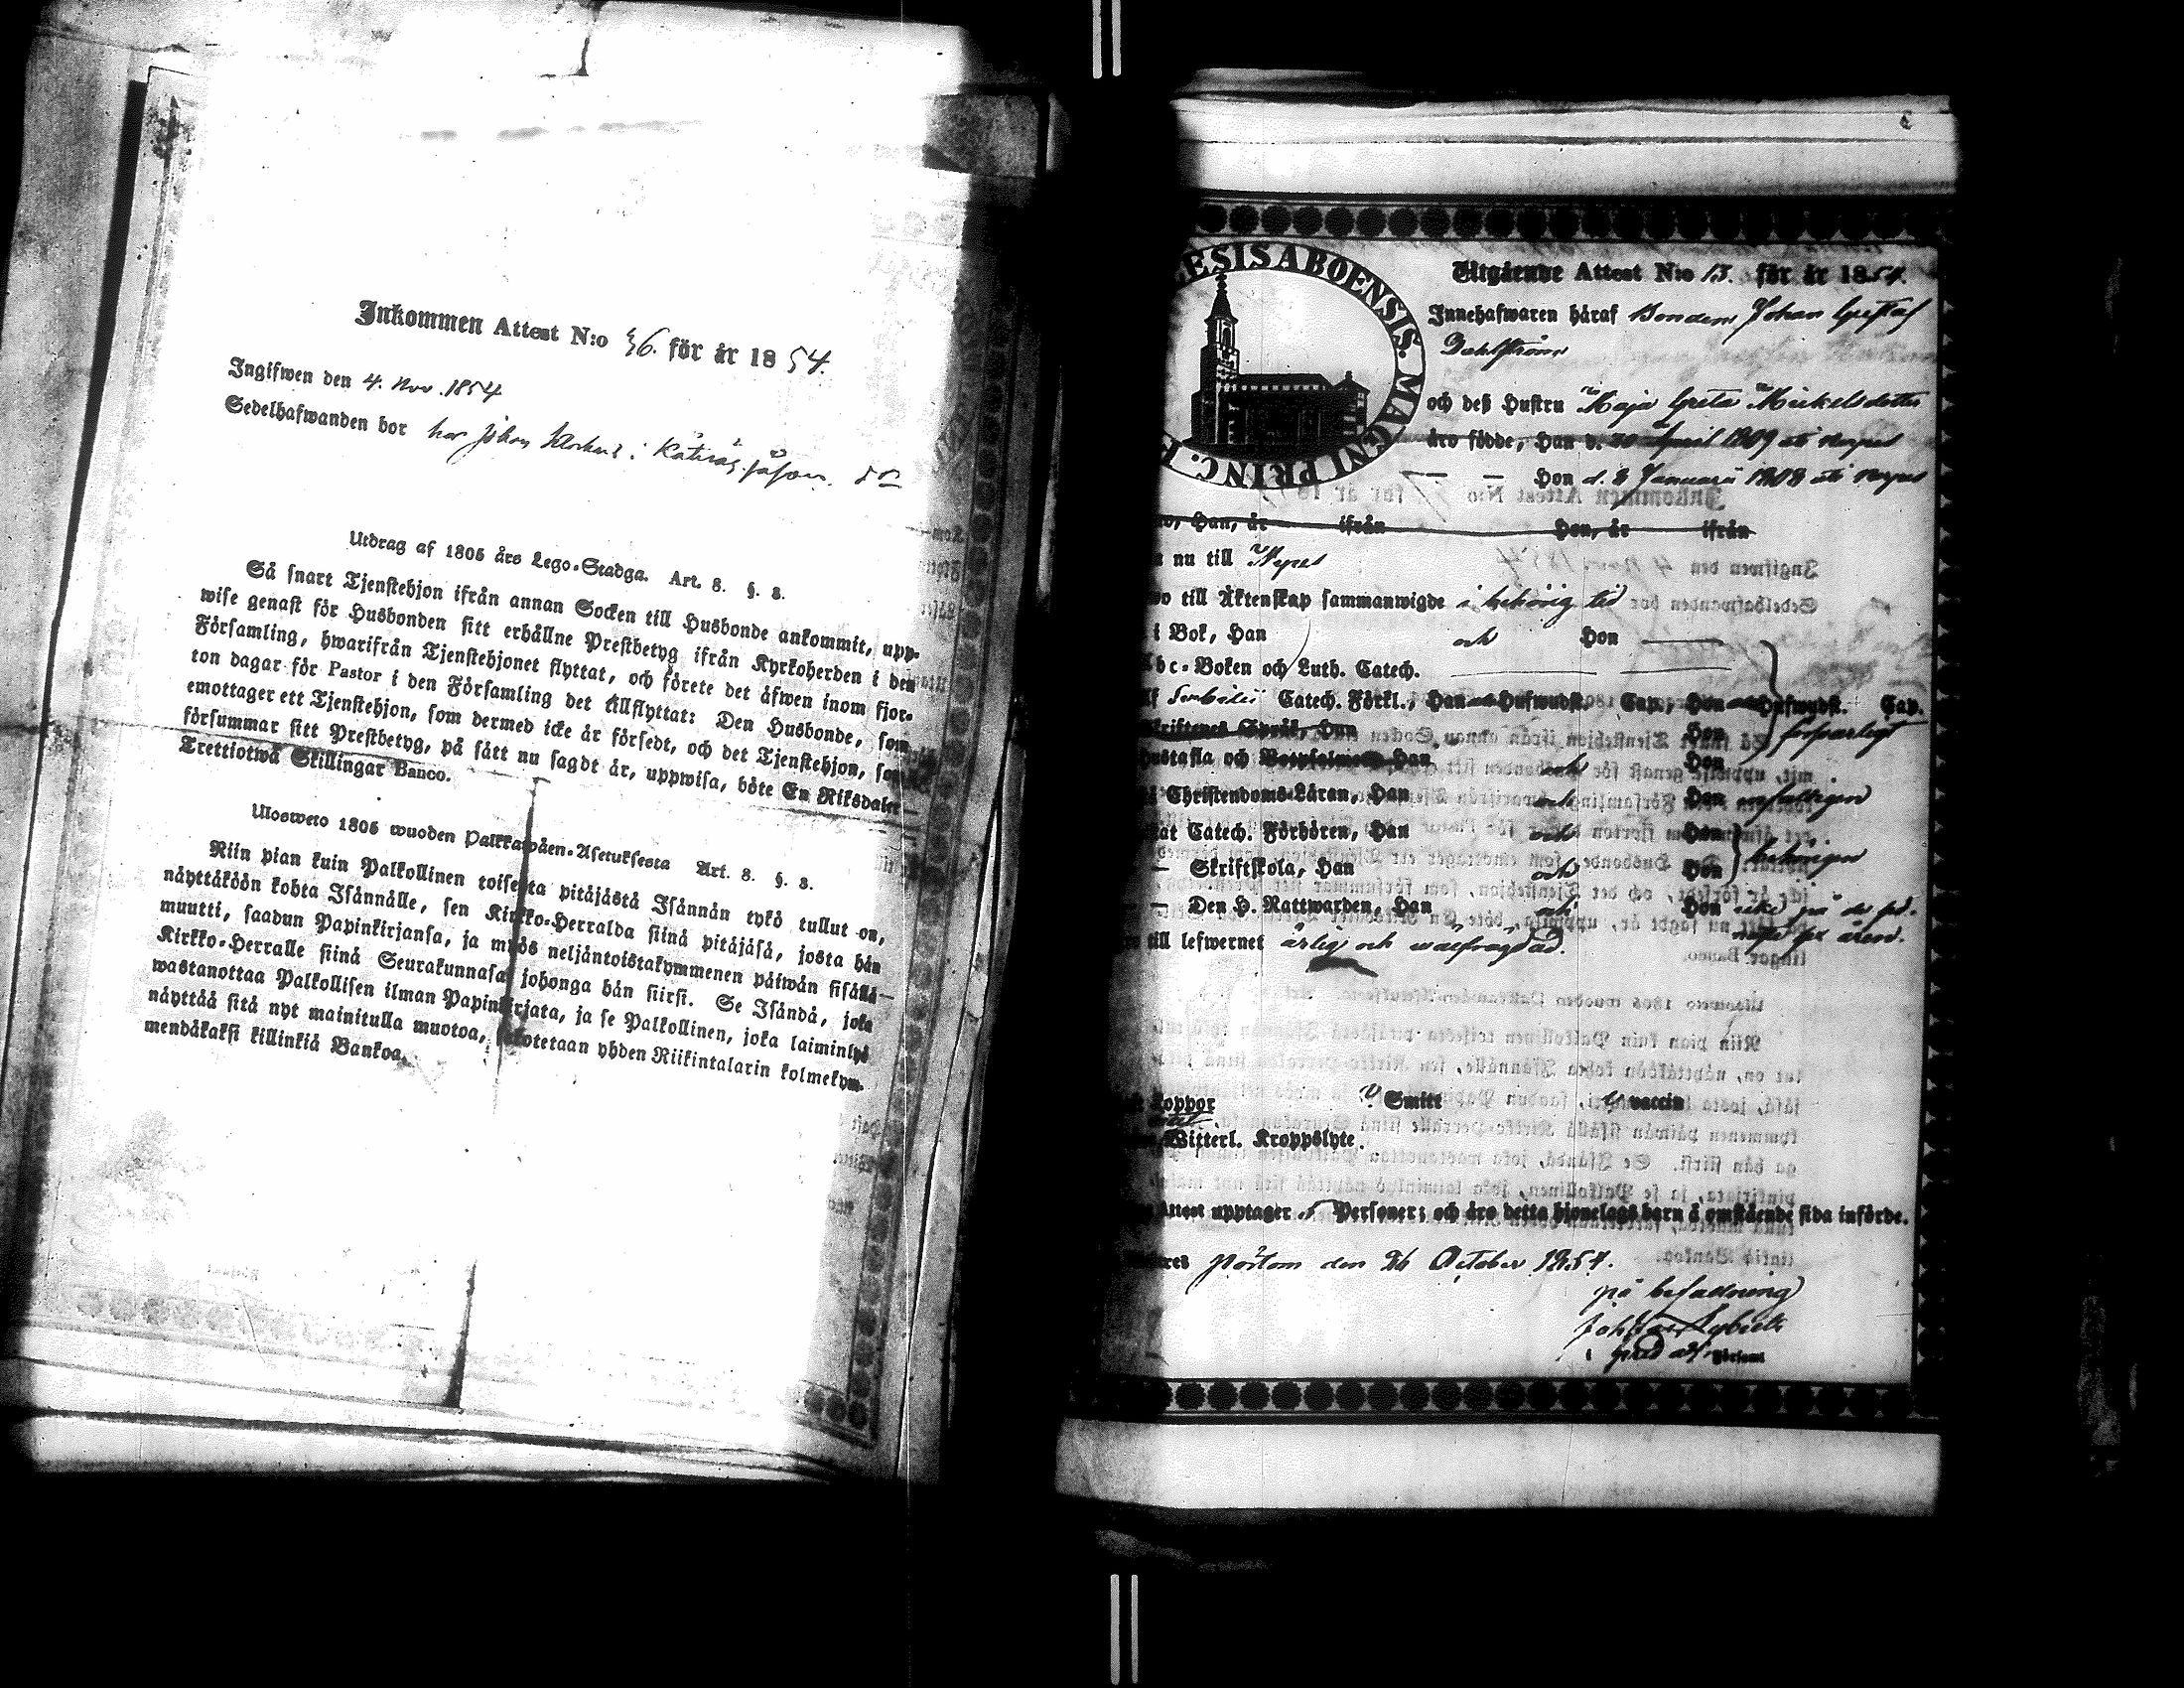 Inkommen Attest N:o 36. för år 1854.
Ingifwen den 4. Nov. 1854
Sedelhafwanden bor hos Johan
Utdrag af 1805 års Lego-Stadga. Art. 8. §. 3.
Så snart Tjenstehjon ifrån annan Socken till Husbonde ankommit, upp-
wise genast för Husbonden sitt erhållne Prestbetyg ifrån Kyrkoherden i den
Församling, hwarifrån Tjenstehjonet flyttat, och förete det äfwen inom fjor-
ton dagar för Pastor i den Församling det tillflyttat: Den Husbonde, som
emottager ett Tjenstehjon, som dermed icke är försedt, och det Tjenstehjon, som
försummar sitt Prestbetyg, på sätt nu sagdt är, uppwisa, böte En Riksdaler
Trettiotwå Skillingar Banco.
Ulosweto 1805 wuoden Palkkawäen-Asetuksesta Art. 8. §. 3.
Niin pian kuin Palkollinen toisesta pitäjästä Isännän tykö tullut on,
näyttäköön kohta Isännälle, sen Kirkko-Herralda siinä pitäjäsä, josta hän
muutti, saadun Papinkirjansa, ja myös neljäntoistakymmenen päiwän sisällä
Kirkko-Herralle siinä Seurakunnasa, johonga hän siirsi. Se Isändä, joka
wastanottaa Palkollisen ilman Papinkirjata, ja se Palkollinen, joka laiminlyö
näyttää sitä nyt mainitulla muotoa, sakotetaan yhden Riikintalarin kolmekym-
mendäkaksi killinkiä Bankoa.
ESIS ABOENSIS. MAGNI PRINC.
Utgående Attest N:o 13. för år 1854.
Innehafwaren häraf Bonden Johan Gustaf
Dahlström
och deß Hustru Maja Greta Mickelsdotter
äro födde, Han d. 30 April 1809 uti Nerpes
Hon d. 8 Januari 1808 uti Nerpes
Han, år ifrån Hon, år ifrån
nu till Nerpes
till Äktenskap sammanwigde i behörig tid
i Bok, Han och Hon
Abc-Boken och Luth. Catech.
Catech. Förkl., Han Hufwudst. Cap., Hon Hufwudst. Cap.
Skriftenes Språk, Han Hon försvarligt
Hustafla och Botpsalmer Han och Hon
Christendoms-Läran, Han och Hon
Catech. Förhören, Han och Hon
Skriftskola, Han och Hon
Den H. Nattwarden, Han och Hon icke på de
till lefwernet ärlig och wälfrägdad.
Koppor Smitt vaccin
Witterl. Kroppslyte.
Attest upptager 5 Personer; och äro detta hjonelags barn å omstående sida införde.
Pörtom den 26 October 1854.
på befallning